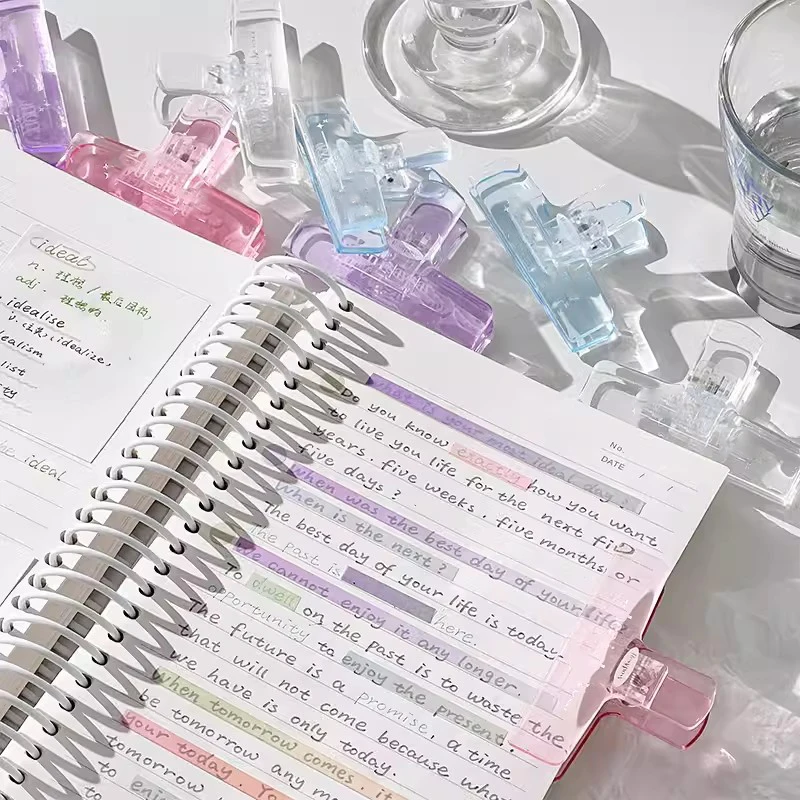 ideal
n. 理想 /
adj. 理想的
idealise
v. idealize,
dealism
list
ity
be ideal
No.
DATE / /
What is your most ideal day?
Do you know exactly how you want
to live you life for the next fiD
years. five weeks. five months or
five days?
When was the best day of your life
When is the next?
The best day of your life is today.
The past is here.
We cannot enjoy it any longer.
To dwell on the past is to waste the
opportunity to enjoy the present.
The future is a promise, a time
that will not come because what
we have is only today.
When tomorrow comes. it
be tomorrow any mo
your today. Yo
tomorrow
to enjo
to